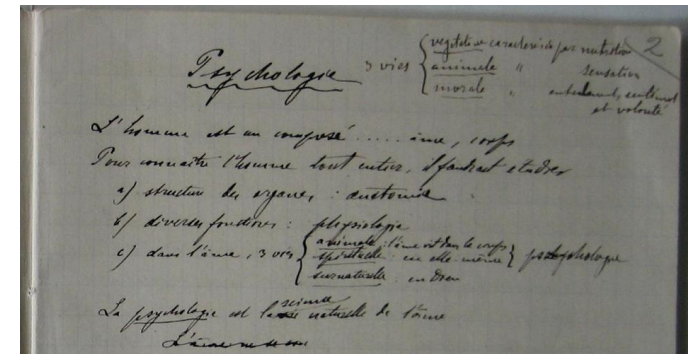 2
Psychologie 3 vies { végétative caractérisée par nutrition
animale " sensation
morale " entendement, sentiment
et volonté
L'homme est un composé ..... âme, corps
Pour connaître l'homme tout entier, il faudrait étudier
a) structure des organes : anatomie
b) diverses fonctions : physiologie
c) dans l'âme, 3 vies { animale : l'âme vit dans le corps
spirituelle : en elle-même } psychologie
surnaturelle : en Dieu
La psychologie est la science naturelle de l'âme